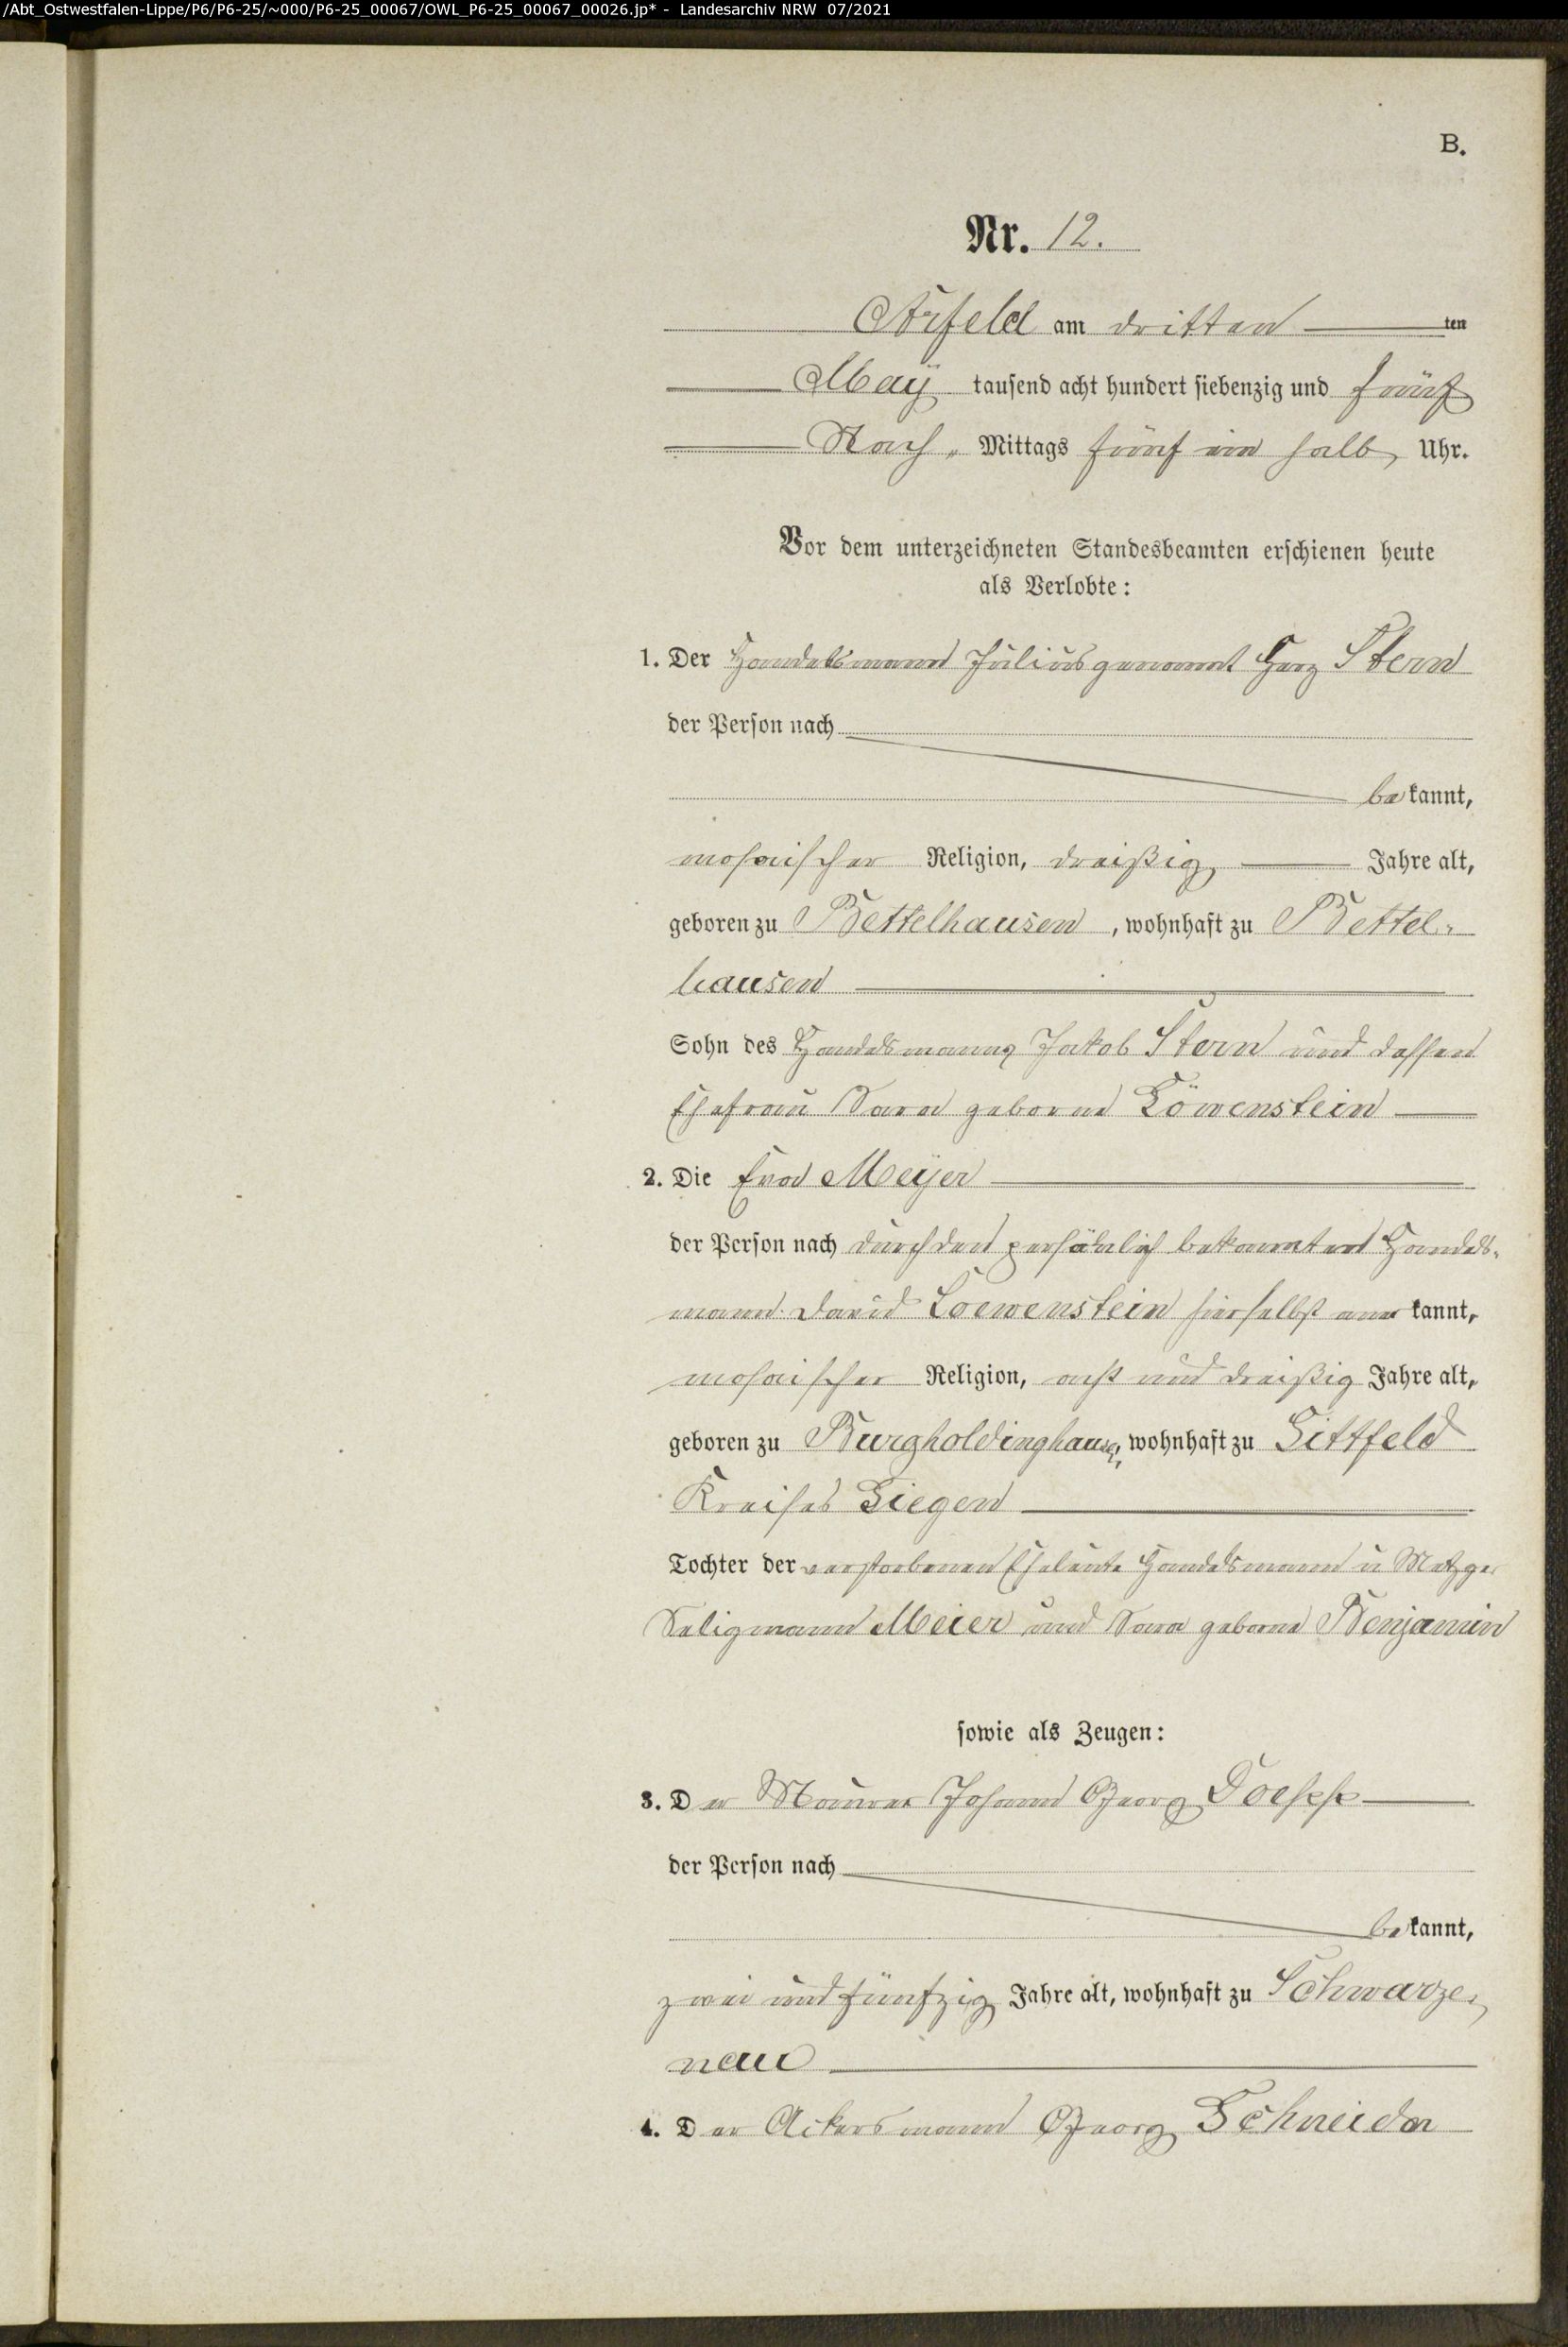 /Abt_Ostwestfalen-Lippe/P6/P6-25/~000/P6-25_00067/OWL_P6-25_00067_00026.jp* - Landesarchiv NRW 07/2021
B.
Nr. 12.
Arfeld am dritten ten
May tausend acht hundert siebenzig und fünf
Nach Mittags fünf ein halb Uhr.
Vor dem unterzeichneten Standesbeamten erschienen heute
als Verlobte:
1. Der Handelsmann Julius genannt Herz Stern
der Person nach
bekannt,
mosaischer Religion, dreißig Jahre alt,
geboren zu Bettelhausen, wohnhaft zu Bettel-
hausen
Sohn des Handelsmanns Jakob Stern und dessen
Ehefrau Sara geborne Löwenstein
2. Die Eva Meÿer
der Person nach durch den persönlich bekannten Handels-
mann David Loewenstein hierselbst anerkannt,
mosaischer Religion, acht und dreißig Jahre alt,
geboren zu Burgholdinghausen, wohnhaft zu Littfeld
Kreises Siegen
Tochter der verstorbenen Eheleute Handelsmann u Metzger
Seligmann Meier und Sara geborne Benjamin
sowie als Zeugen:
3. Der Maurer Johann Georg
der Person nach
bekannt,
zwei und fünfzig Jahre alt, wohnhaft zu Schwarze-
nau
4. Der Ackersmann Georg Schneider